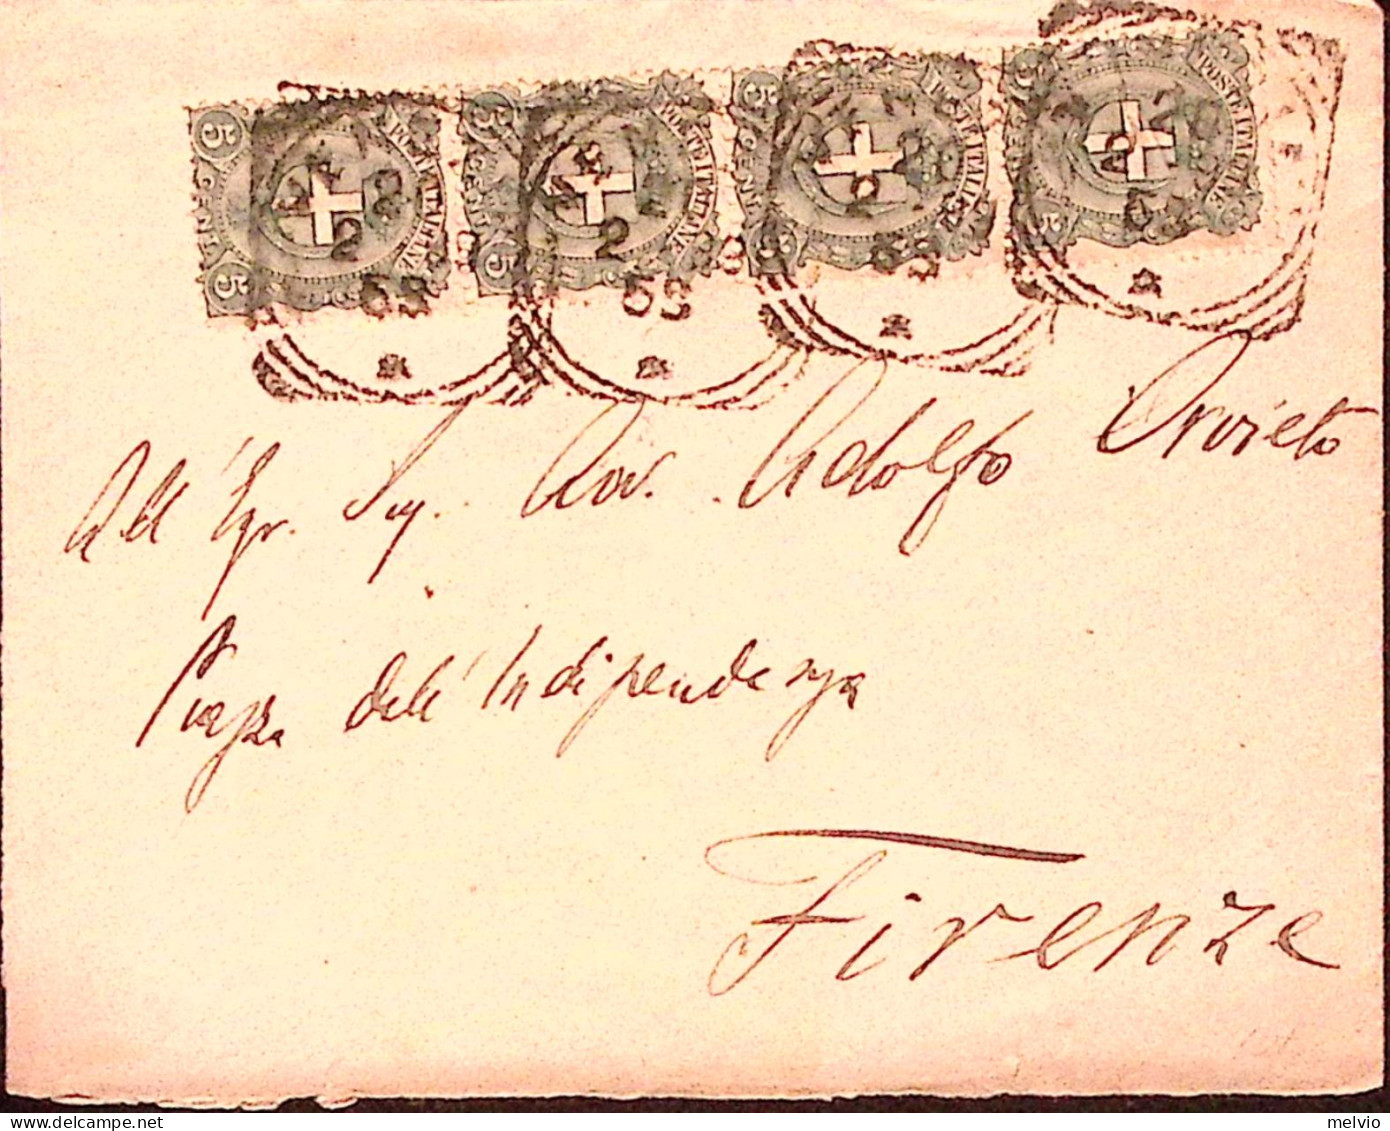 5 CENT. 5 POSTE ITALIANE
5 CENT 5 POSTE ITALIANE
5 CENT POSTE ITALIANE
POSTE ITALIANE
2 98
2 98
All' Egr. Sig. Avv. Adolfo Orvieto
Piazza dell' Indipendenza
Firenze
melvio